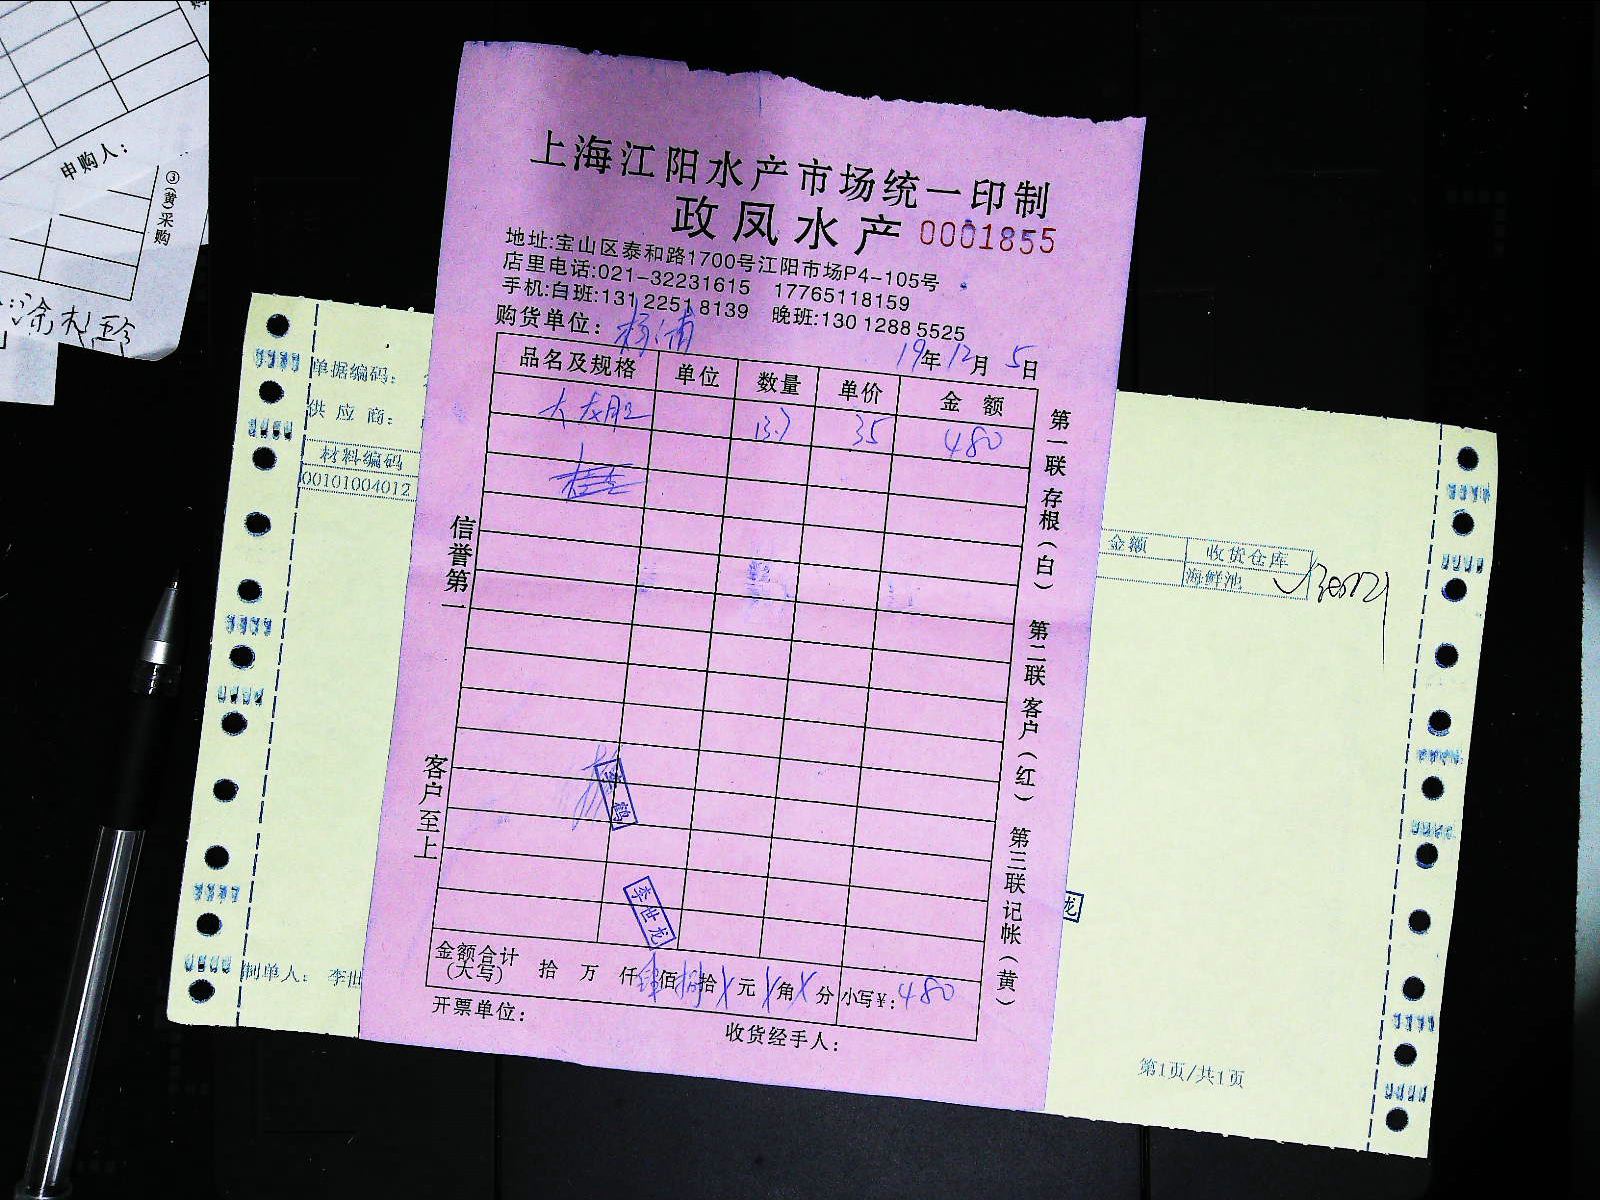 申购人：
③(黄)采购
上海江阳水产市场统一印制
政凤水产 0001855
地址:宝山区泰和路1700号江阳市场P4-105号
店里电话:021-32231615 17765118159
手机:白班:131 2251 8139 晚班:130 1288 5525
购货单位：杨浦
19年12月5日
品名及规格 单位 数量 单价 金额
13.7 35 480
信誉第一
客户至上
第一联 存根（白） 第二联 客户（红） 第三联 记帐（黄）
李鹤
李世龙
金额合计(大写) 拾 万 仟 肆佰 捌拾 X元 X角 X分 小写¥:480
开票单位：
收货经手人：
单据编码：
供 应 商：
材料编码
00101004012
金额 收货仓库
海鲜池
龙
制单人： 李世
第1页/共1页